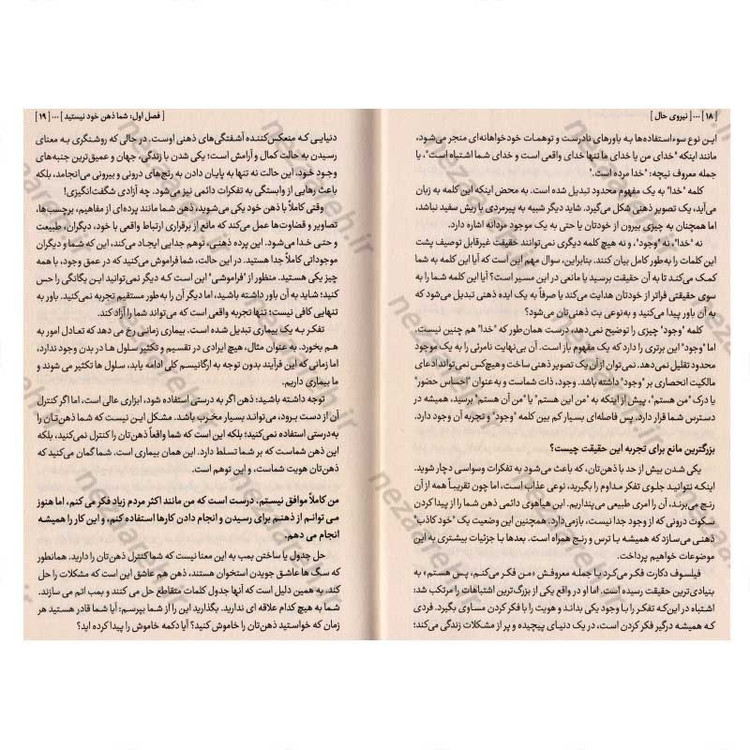 [ ۱۸ ] ... [ نیروی حال ]
این نوع سوءاستفاده‌ها به باورهای نادرست و توهمات خودخواهانه‌ای منجر می‌شود،
مانند اینکه "خدای من یا خدای ما تنها خدای واقعی است و خدای شما اشتباه است"، یا
جمله معروف نیچه: "خدا مرده است."
کلمه "خدا" به یک مفهوم محدود تبدیل شده است. به محض اینکه این کلمه به زبان
می‌آید، یک تصویر ذهنی شکل می‌گیرد. شاید دیگر شبیه به پیرمردی با ریش سفید نباشد،
اما همچنان به چیزی بیرون از خودتان یا حتی به یک موجود مردانه اشاره دارد.
نه "خدا"، نه "وجود"، و نه هیچ کلمه دیگری نمی‌توانند حقیقت غیرقابل توصیف پشت
این کلمات را به‌طور کامل بیان کنند. بنابراین، سوال مهم این است که آیا این کلمه به شما
کمک می‌کند تا به آن حقیقت برسید یا مانعی در این مسیر است؟ آیا این کلمه شما را به
سوی حقیقتی فراتر از خودتان هدایت می‌کند یا صرفاً به یک ایده ذهنی تبدیل می‌شود که
به آن باور پیدا می‌کنید و به‌نوعی بت ذهنی‌تان می‌شود؟
کلمه "وجود" چیزی را توضیح نمی‌دهد، درست همان‌طور که "خدا" هم چنین نیست.
اما "وجود" این برتری را دارد که یک مفهوم باز است. آن بی‌نهایت نامرئی را به یک موجود
محدود تقلیل نمی‌دهد. نمی‌توان از آن یک تصویر ذهنی ساخت و هیچ‌کس نمی‌تواند ادعای
مالکیت انحصاری بر "وجود" داشته باشد. وجود، ذات شماست و به‌عنوان "احساس حضور"
یا درک "من هستم"، پیش از اینکه به "من این هستم" یا "من آن هستم" برسید، همیشه در
دسترس شما قرار دارد. پس فاصله‌ای بسیار کم بین کلمه "وجود" و تجربه آن وجود دارد.
بزرگترین مانع برای تجربه این حقیقت چیست؟
یکی شدن بیش از حد با ذهن‌تان، که باعث می‌شود به تفکرات وسواسی دچار شوید.
اینکه نتوانید جلوی تفکر مداوم را بگیرید، نوعی عذاب است، اما چون تقریباً همه از آن
رنج می‌برند، آن را امری طبیعی می‌پنداریم. این هیاهوی دائمی ذهن شما را از پیدا کردن
سکوت درونی که از وجود جدا نیست، بازمی‌دارد. همچنین این وضعیت یک "خود کاذب"
ذهنی می‌سازد که همیشه با ترس و رنج همراه است. بعدها با جزئیات بیشتری به این
موضوعات خواهیم پرداخت.
فیلسوف دکارت فکر می‌کرد با جمله معروفش «من فکر می‌کنم، پس هستم» به
بنیادی‌ترین حقیقت رسیده است، اما او در واقع یکی از بزرگ‌ترین اشتباهات را مرتکب شد:
اشتباه در این‌که تفکر را با وجود یکی بداند و هویت را با فکر کردن مساوی بگیرد. فردی
که همیشه درگیر فکر کردن است، در یک دنیای پیچیده و پر از مشکلات زندگی می‌کند؛
[ فصل اول: شما ذهن خود نیستید ] ... [ ۱۹ ]
دنیایی که منعکس‌کننده آشفتگی‌های ذهنی اوست. در حالی که روشنگری به معنای
رسیدن به حالت کمال و آرامش است؛ یکی شدن با زندگی، جهان و عمیق‌ترین جنبه‌های
وجود خود. این حالت نه تنها به پایان دادن به رنج‌های درونی و بیرونی می‌انجامد، بلکه
باعث رهایی از وابستگی به تفکرات دائمی نیز می‌شود. چه آزادی شگفت‌انگیزی!
وقتی کاملاً با ذهن خود یکی می‌شوید، ذهن شما مانند پرده‌ای از مفاهیم، برچسب‌ها،
تصاویر و قضاوت‌ها عمل می‌کند که مانع از برقراری ارتباط واقعی با خود، دیگران، طبیعت
و حتی خدا می‌شود. این پرده ذهنی، توهم جدایی ایجاد می‌کند، این که شما و دیگران
موجوداتی کاملاً جدا هستید. در این حالت، شما فراموش می‌کنید که در عمق وجود، با همه
چیز یکی هستید. منظور از "فراموشی" این است که دیگر نمی‌توانید این یگانگی را حس
کنید؛ شاید به آن باور داشته باشید، اما دیگر آن را به‌طور مستقیم تجربه نمی‌کنید. باور به
تنهایی کافی نیست؛ تنها تجربه واقعی است که می‌تواند شما را آزاد کند.
تفکر به یک بیماری تبدیل شده است. بیماری زمانی رخ می دهد که تعادل امور به
هم بخورد. به عنوان مثال، هیچ ایرادی در تقسیم و تکثیر سلول ها در بدن وجود ندارد،
اما زمانی که این فرآیند بدون توجه به ارگانیسم کلی ادامه یابد، سلول ها تکثیر می شوند و
ما بیماری داریم.
توجه داشته باشید: ذهن اگر به درستی استفاده شود، ابزاری عالی است، اما اگر کنترل
آن از دست برود، می‌تواند بسیار مخرب باشد. مشکل این نیست که شما ذهن‌تان را
به‌درستی استفاده نمی‌کنید؛ بلکه این است که شما واقعاً ذهن‌تان را کنترل نمی‌کنید، بلکه
این ذهن شماست که بر شما تسلط دارد. این همان بیماری است. شما گمان می‌کنید که
ذهن‌تان هویت شماست، و این توهم است.
من کاملاً موافق نیستم. درست است که من مانند اکثر مردم زیاد فکر می کنم، اما هنوز
می توانم از ذهنم برای رسیدن و انجام دادن کارها استفاده کنم، و این کار را همیشه
انجام می دهم.
حل جدول یا ساختن بمب به این معنا نیست که شما کنترل ذهن‌تان را دارید. همانطور
که سگ ها عاشق جویدن استخوان هستند، ذهن هم عاشق این است که مشکلات را حل
کند. به همین دلیل است که آنها جدول کلمات متقاطع حل می کنند و بمب اتم می سازند.
شما به هیچ کدام علاقه ای ندارید. بگذارید این را از شما بپرسم: آیا شما قادر هستید هر
زمان که خواستید ذهن‌تان را خاموش کنید؟ آیا دکمه خاموش را پیدا کرده اید؟
nezareh.ir